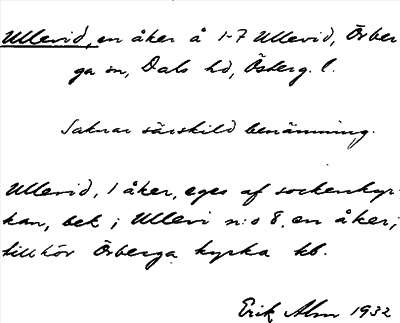 Ullevid, en åker å 1-7 Ullevid, Örber
ga sn, Dals hd, Österg. l.
Saknar särskild benämning.
Ullevid, 1 åker, eges af sockenkyr-
kan, bek i Ullevi n:o 8, en åker,
tillhör Örberga kyrka kb.
Erik Alm 1932